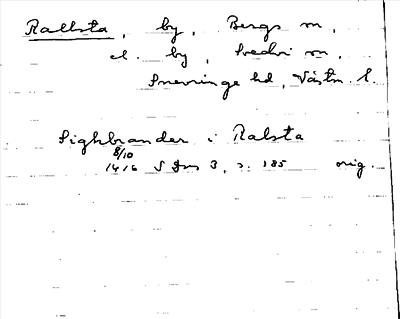 Rallsta, by, Bergs sn,
el. by, Svedvi sn,
Snevringe hd, Västm. l.
Sighbrander i Ralsta
8/10
1416 SDns 3, s. 185 orig.